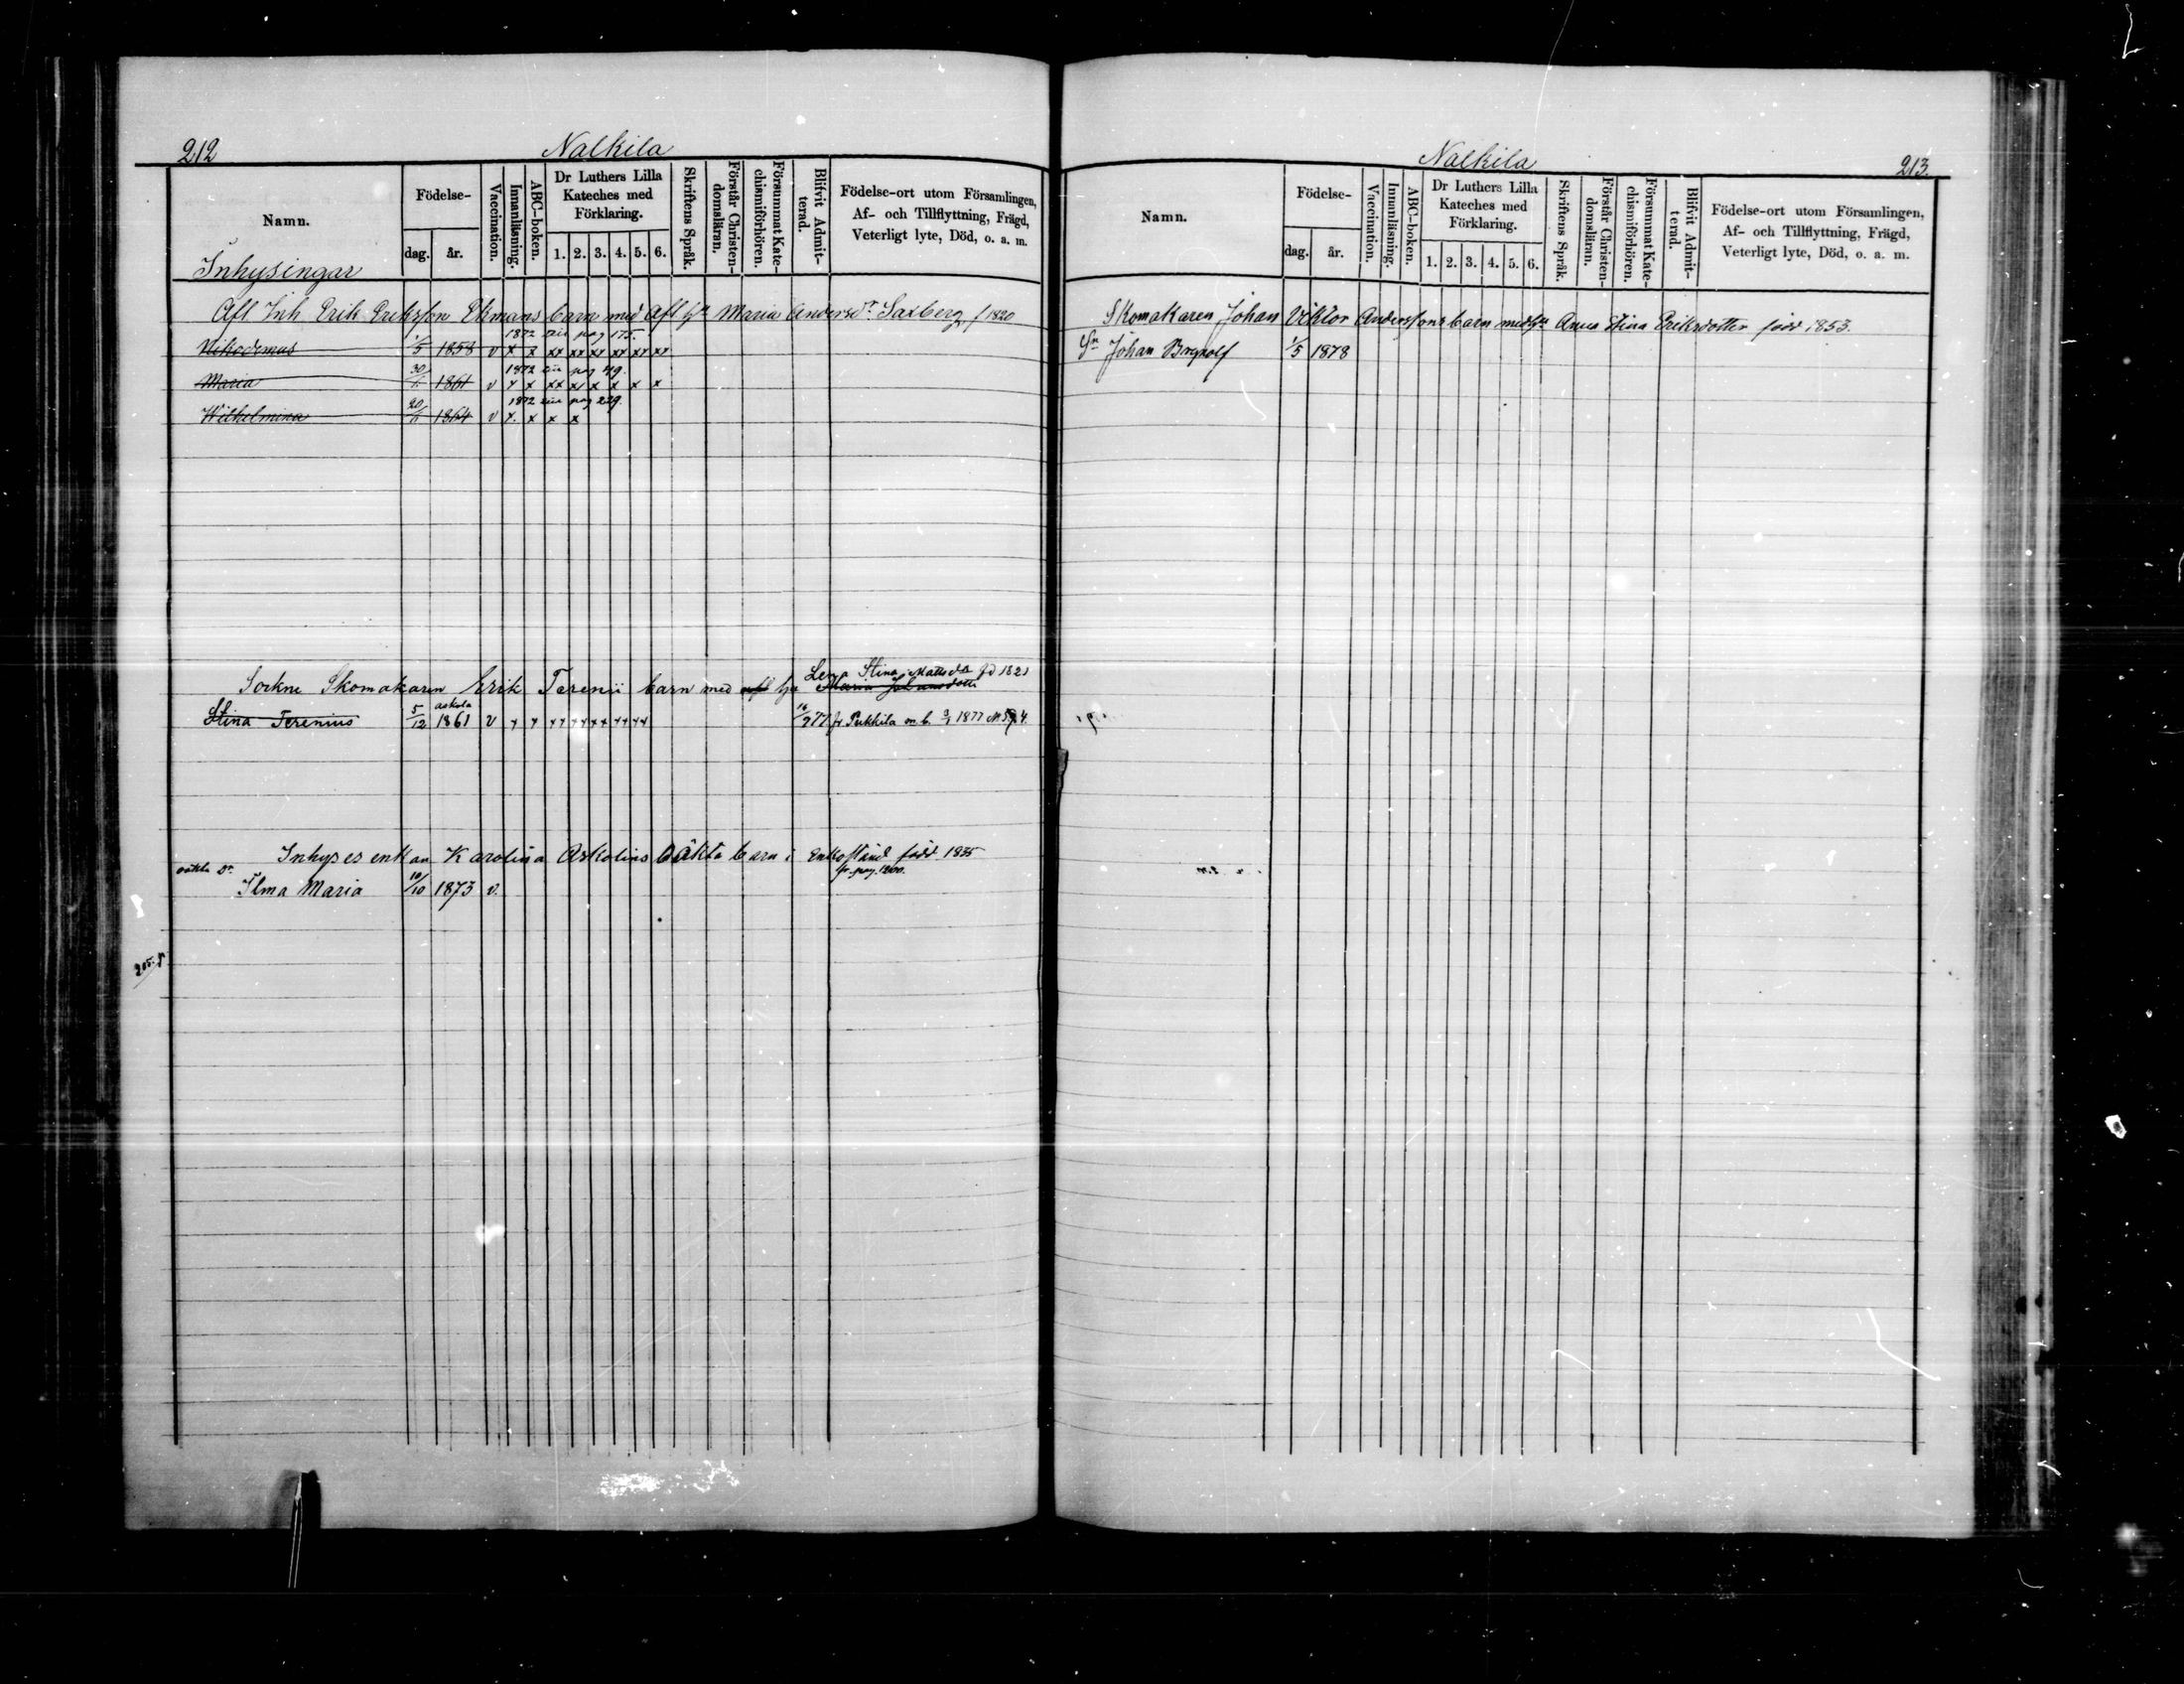 212
Nalkila
Namn.
Födelse-
dag.
år.
Vaccination.
Innanläsning.
ABC-boken.
Dr Luthers Lilla
Kateches med
Förklaring.
1. 2. 3. 4. 5. 6.
Skriftens Språk.
Förstår Christen-
domsläran.
Försummat Kate-
chismiförhören.
Blifvit Admit-
terad.
Födelse-ort utom Församlingen,
Af- och Tillflyttning, Frägd,
Veterligt lyte, Död, o. a. m.
Inhysingar
Afl Inh Erik Eriksson Ekmans barn med Afl hu Maria Andersdr. Saxberg f 1820
1872 pag 175.
Nikodemus 1/5 1858 v x x xx xx xx xx xx xx
1872 pag 49.
Maria 30/ 1861 v x x xx x x x x x
1872 pag 229.
Wilhelmina 20/ 1864 v x. x x x
Stina Mattsdr fd 1821
Sockne Skomakaren Erik Terenii barn med afl hu Maria
askola
Stina Terenius 5/12 1861 v x x xx xx xx xx xx 16/2 77 fr Pukkila m.b. 1877
Inhyses enkan Karolina Askolins oäkta barn i Enkostånd född 1835
oäkta Dr. fr. pag. 1200.
Ilma Maria 10/10 1873 v.
Nalkila
213.
Namn.
Födelse-
dag.
år.
Vaccination.
Innanläsning.
ABC-boken.
Dr Luthers Lilla
Kateches med
Förklaring.
1. 2. 3. 4. 5. 6.
Skriftens Språk.
Förstår Christen-
domsläran.
Försummat Kate-
chismiförhören.
Blifvit Admit-
terad.
Födelse-ort utom Församlingen,
Af- och Tillflyttning, Frägd,
Veterligt lyte, Död, o. a. m.
Skomakaren Johan Viktor Anderssons barn med hu Anna Stina Eriksdotter född 1853.
Sn Johan Brynolf 1/5 1878